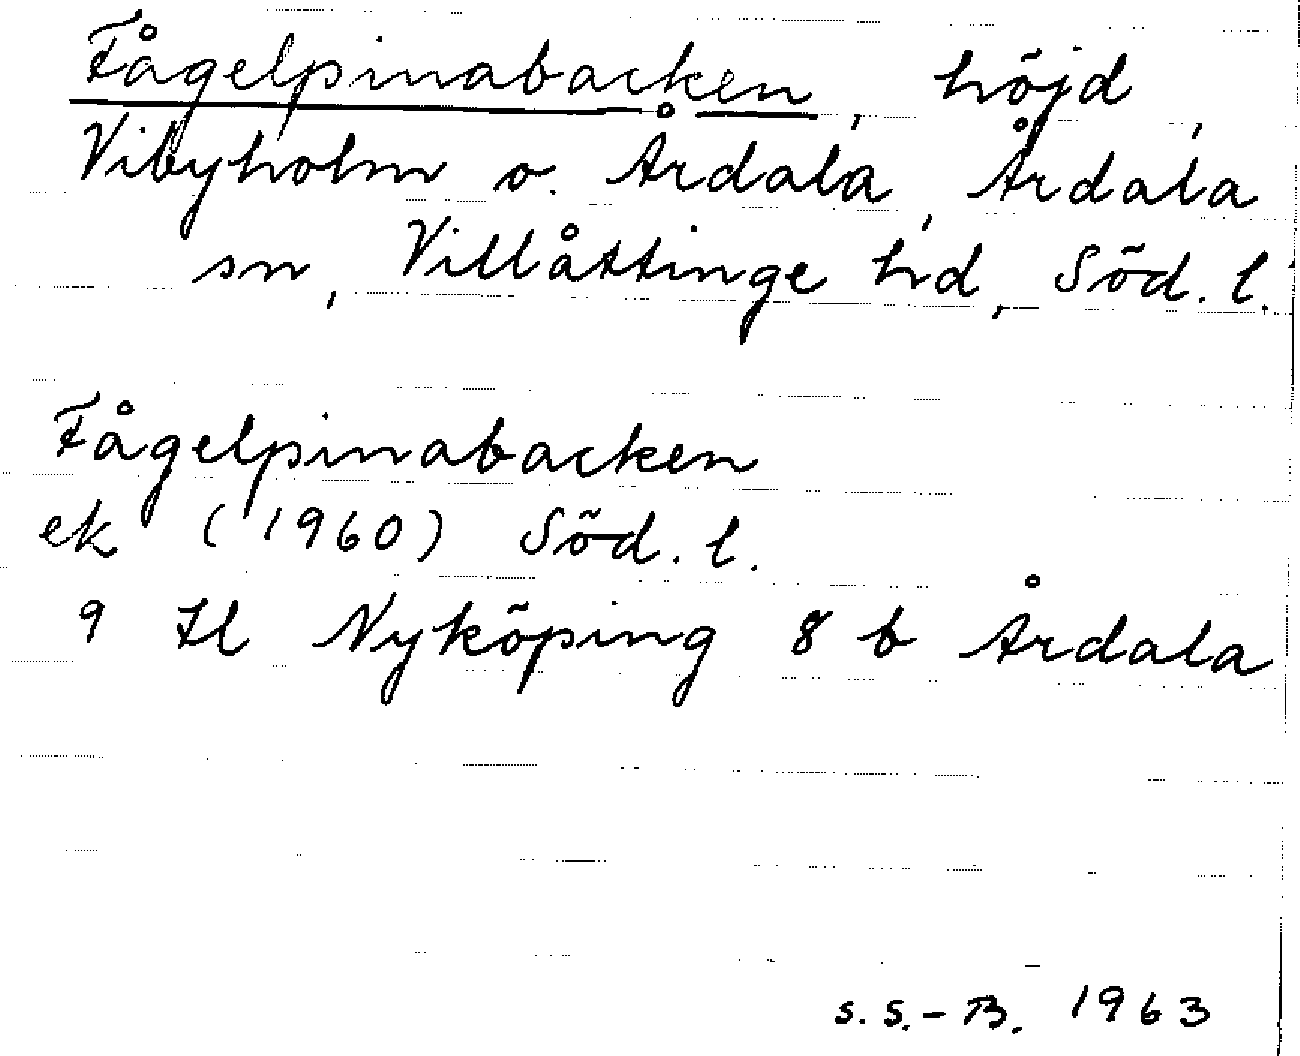 Fågelpinabacken, höjd,
Vibyholm o. Årdala, Årdala
sn, Villåttinge hd, Söd. l.
Fågelpinabacken
ek (1960) Söd. l.
9 H l Nyköping 8 b Årdala
S.S.-B. 1963